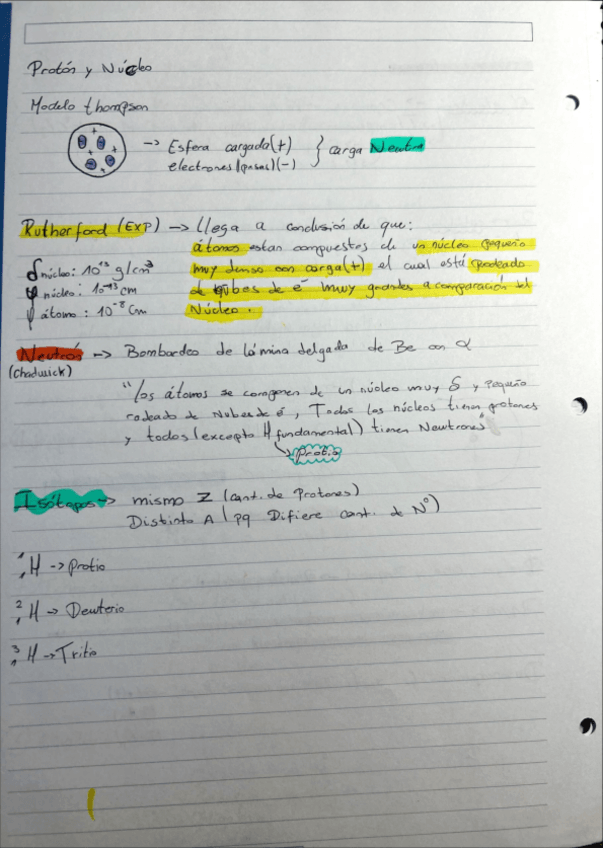 Protón y Núcleo
Modelo thompson
→ Esfera cargada (+) } carga Neutra
electrones (pasas) (-)
Rutherford (EXP) → Llega a conclusión de que:
átomos estan compuestos de un núcleo pequeño
δ núcleo: 10¹³ g/cm³ muy denso con carga (+) el cual está rodeado
φ núcleo: 10⁻¹³ cm de nubes de e⁻ muy grandes a comparación del
φ átomo: 10⁻⁸ cm Núcleo.
Neutrón → Bombardeo de lámina delgada de Be con α
(Chadwick)
"los átomos se componen de un núcleo muy δ y pequeño
rodeado de Nubes de e⁻, Todos los núcleos tienen protones
y todos (excepto H fundamental) tienen Neutrones"
↳ Protio
Isótopos → mismo Z (cant. de protones)
Distinto A (pq Difiere cant. de N°)
¹₁H → Protio
²₁H → Deuterio
³₁H → Tritio